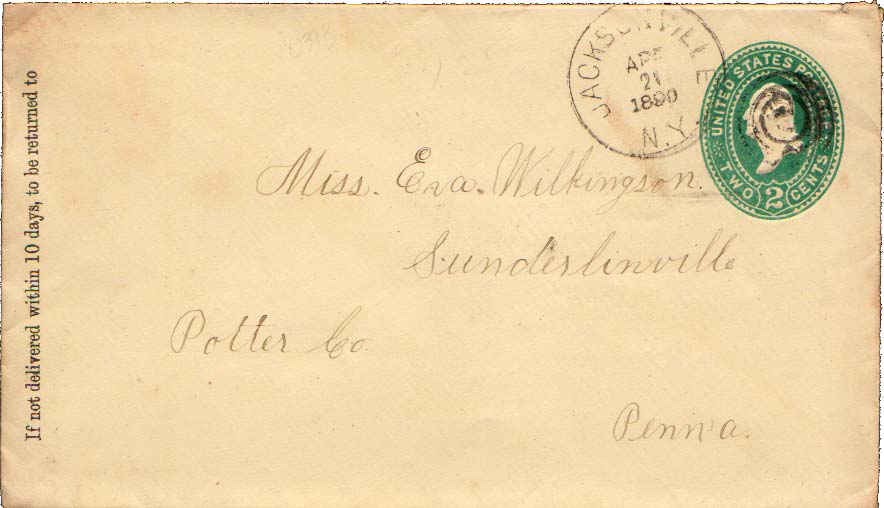 JACKSONVILLE
APR
21
1890
N.Y.
UNITED STATES
TWO 2 CENTS
Miss. Eva. Wilkingson.
Sunderlinville
Potter Co.
Penn'a.
If not delivered within 10 days, to be returned to